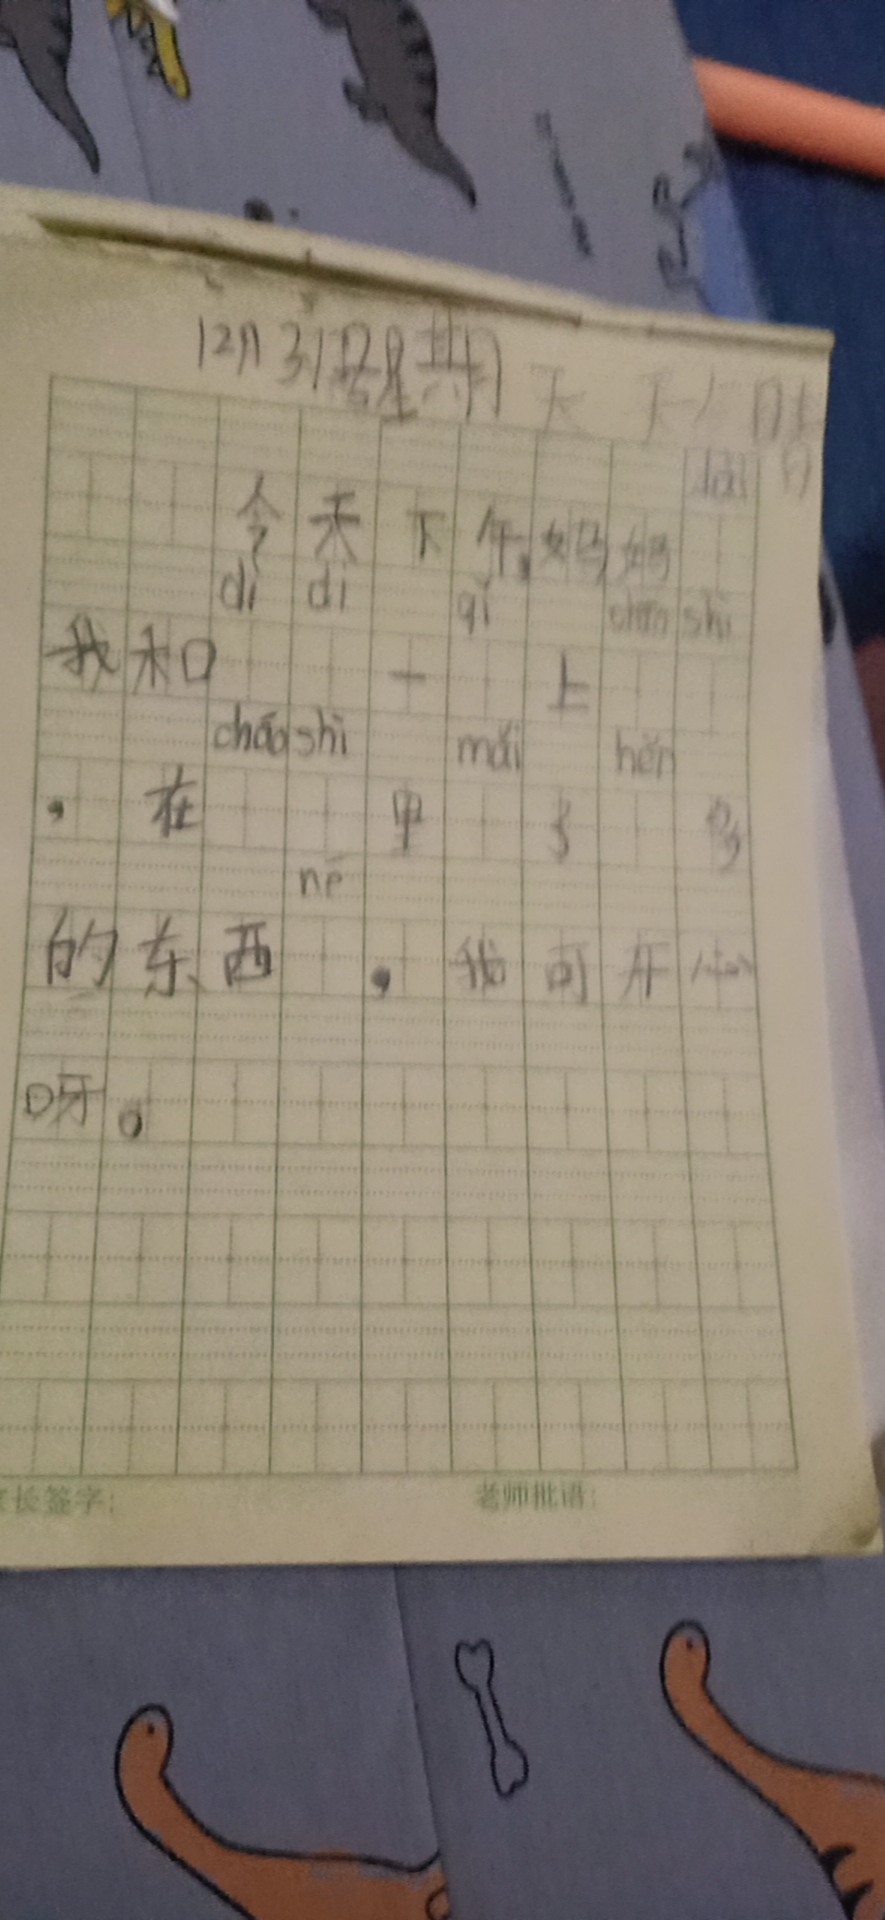 12月31日星期天 天气晴
dài
今天下午,妈妈
dì dì qǐ chāo shì
我和 一 上
chāo shì mǎi hěn
,在 里 了 多
né
的东西 ,我可开心
呀。
家长签字: 老师批语: